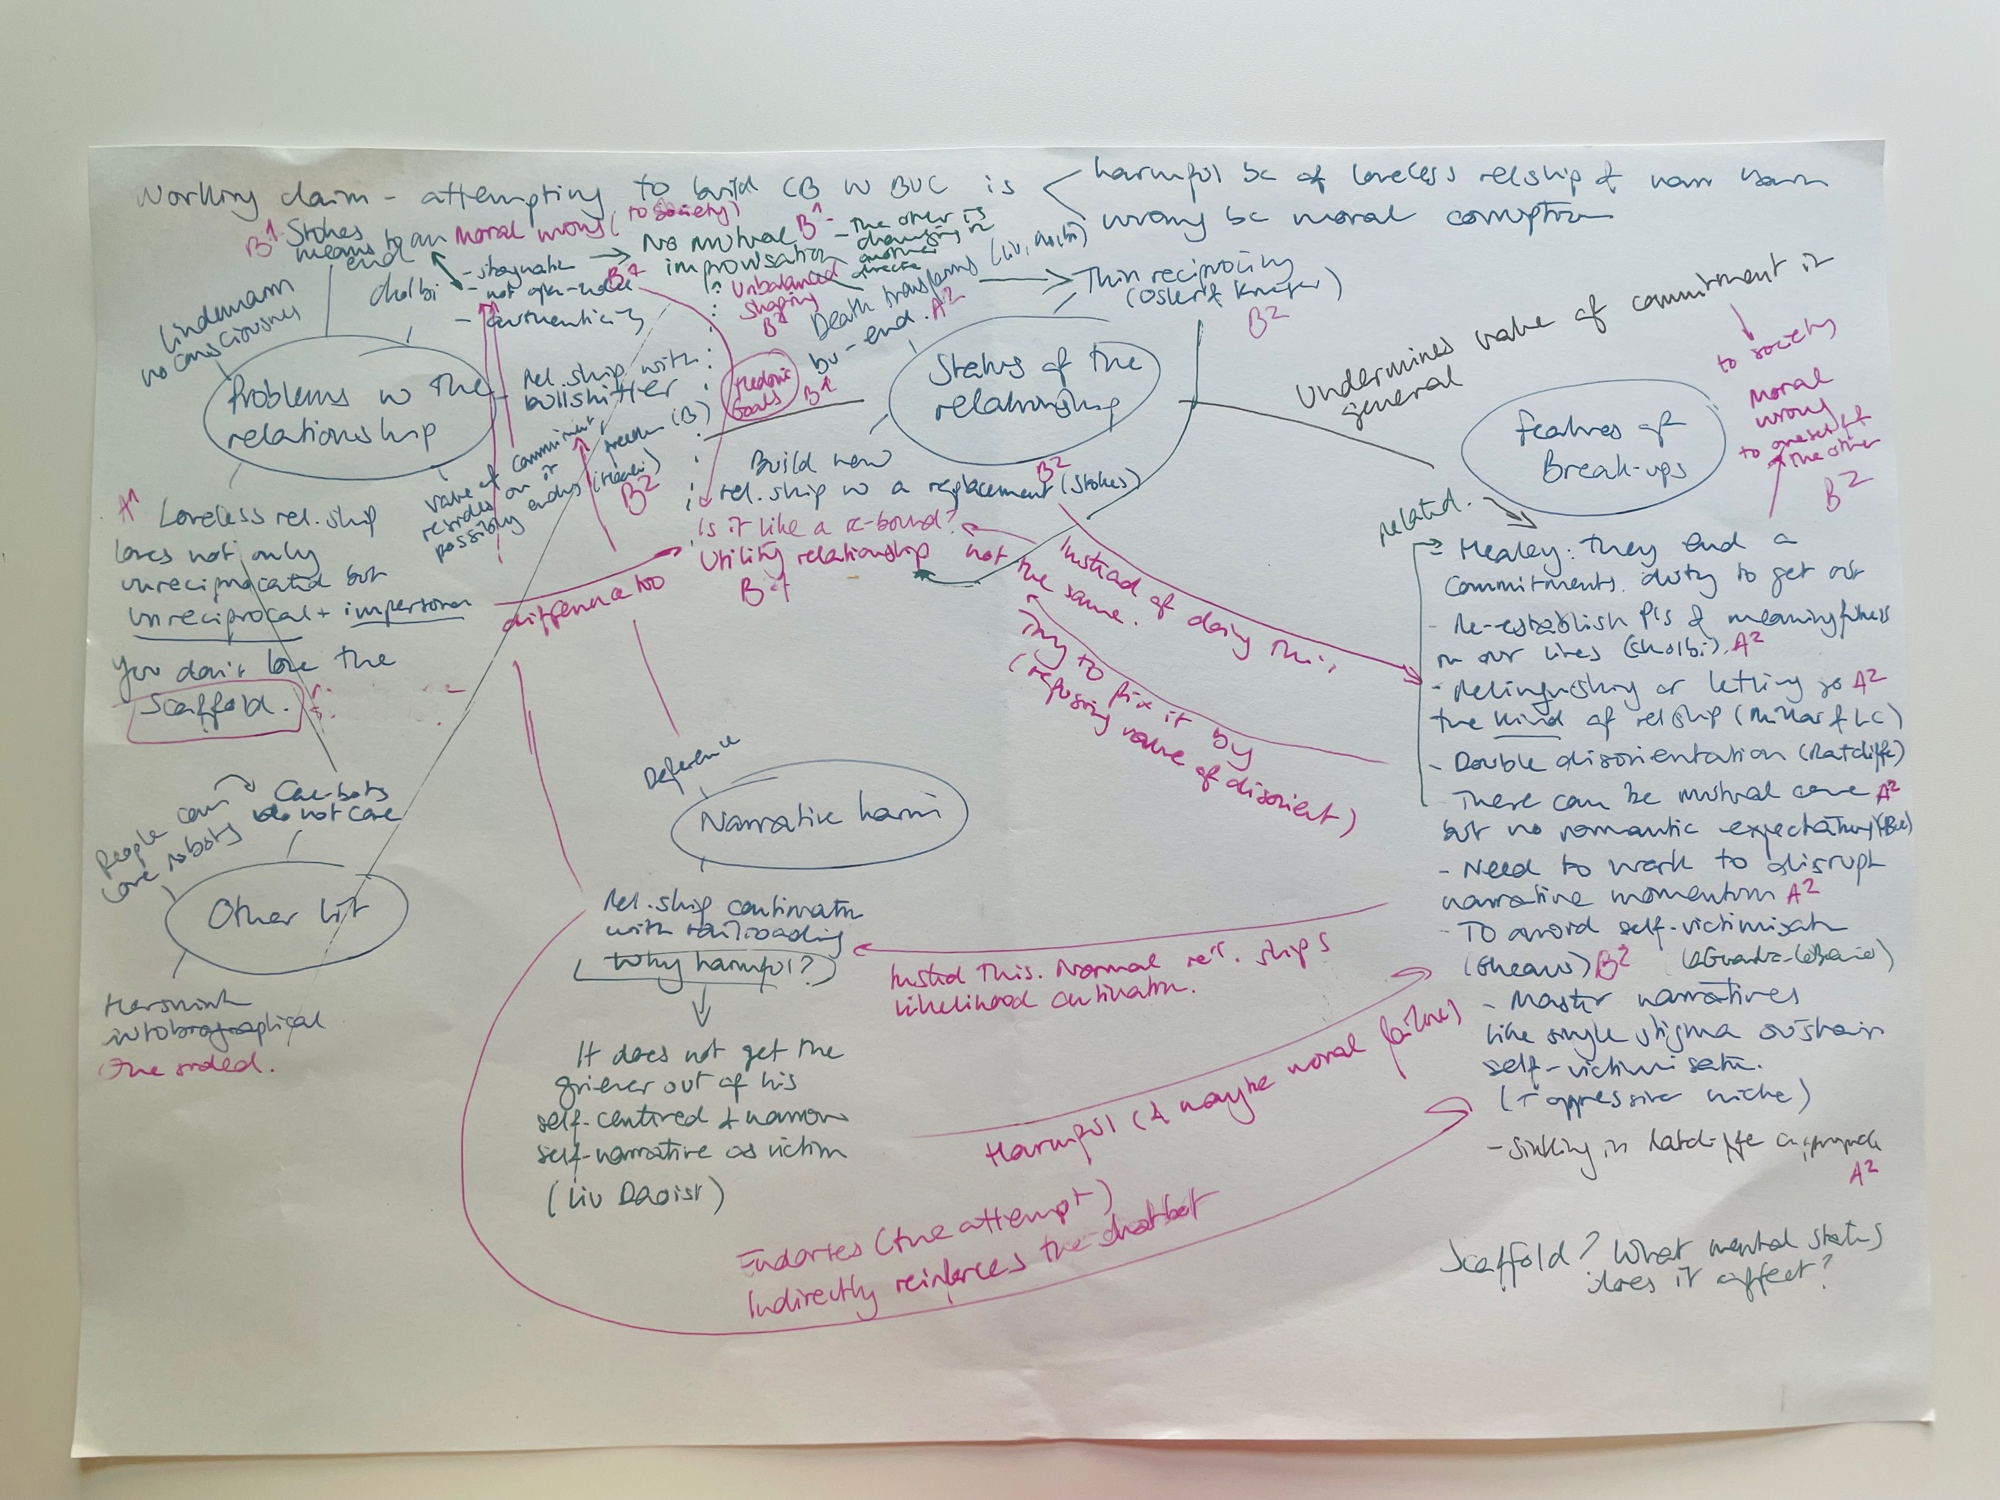 Working claim - attempting to build CB w BUC is
harmful bc of loveless relship & narr harm
wrong bc moral corruption
B1 Stokes
means to an
end
Moral wrong (to society)
Lindemann
no consciousness
Cholbi
- stagnation
- not open-ended
- authenticity
B2
No mutual B1
improvisation
- The other is
changing in
another
Unbalanced
shaping
B1
Death transforms (Liu, Cholbi)
bu-end. A2
B1
Hedonic
Goals
Thin reciprocity
(Osler & Krueger)
B2
Problems w the
relationship
Rel.ship with
bullshitter
Value of commitment
resides on it
possibly ending (Healei)
freedom (B)
B2
Status of the
relationship
Undermines value of commitment in
general
to society
Moral
wrong
to oneself &
the other
B2
Features of
Break-ups
Build new
rel.ship w a replacement (Stokes)
B2
Is it like a re-bound?
Utility relationship
B1
not
the same.
Instead of doing this,
Try to fix it by
(refusing value of disorient)
A1
Loveless rel.ship
loves not only
unreciprocated but
unreciprocal + impersonal
You don't love the
Scaffold.
difference too
related.
- Healey: they end a
commitments. duty to get out
- Re-establish PIs & meaningfulness
in our lives (Cholbi). A2
- Relinguishing or letting go A2
the kind of relship (Millar & LC)
- Double disorientation (Ratcliffe)
- There can be mutual care A2
but no romantic expectations
- Need to work to disrupt
narrative momentum A2
- To avoid self-victimisatn
(Gheaus) B2
- Master narratives
like single stigma
self-victimisatn.
(+ oppressive niche)
- Sinking in Ratcliffe
A2
Deference
Narrative harm
Rel.ship continuatn
with railroading
(Why harmful?)
It does not get the
griever out of his
self-centred & narrow
self-narrative as victim
(Liu Daoist)
People can
love robots
Care-bots
do not care
Other lit
intobrographical
One sided.
Insted this. Normal rel. ships
likelihood continuation.
Harmful (& maybe moral failure)
Endorses (the attempt)
Indirectly reinforces the chatbot
Scaffold? What mental states
does it affect?